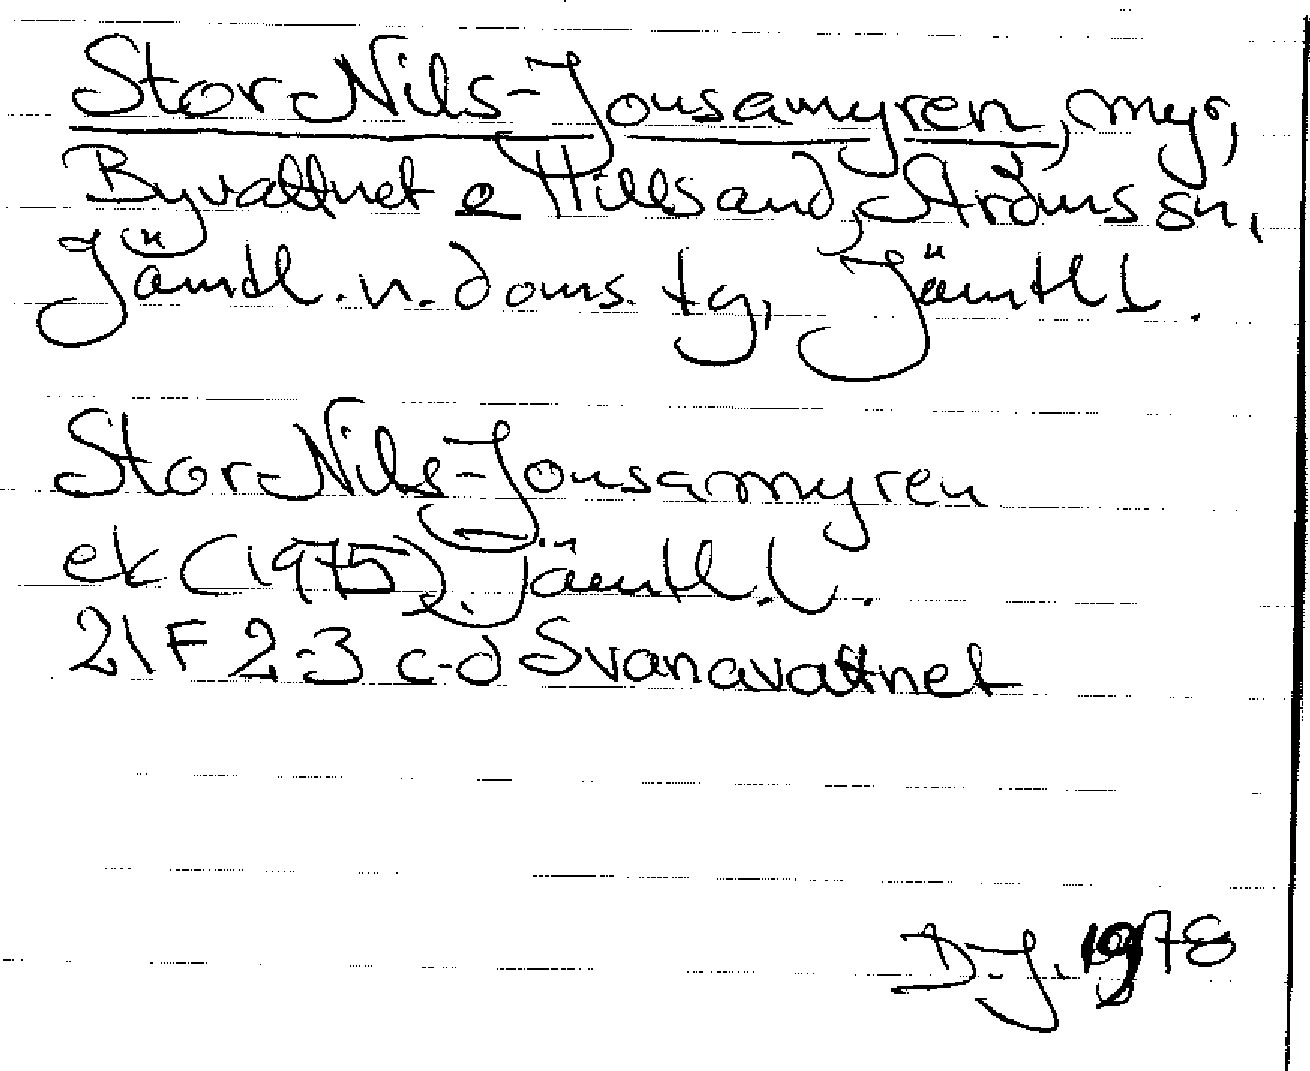 Stor-Nils-Jonsamyren, myr,
Byvattnet o Hillsand, Ströms sn,
Jämtl. n. doms. tg, Jämtl l.
Stor-Nils-Jonsamyren
ek (1975). Jämtl. l.
21F 2-3 c-d Svanavattnet
D.J. 1978